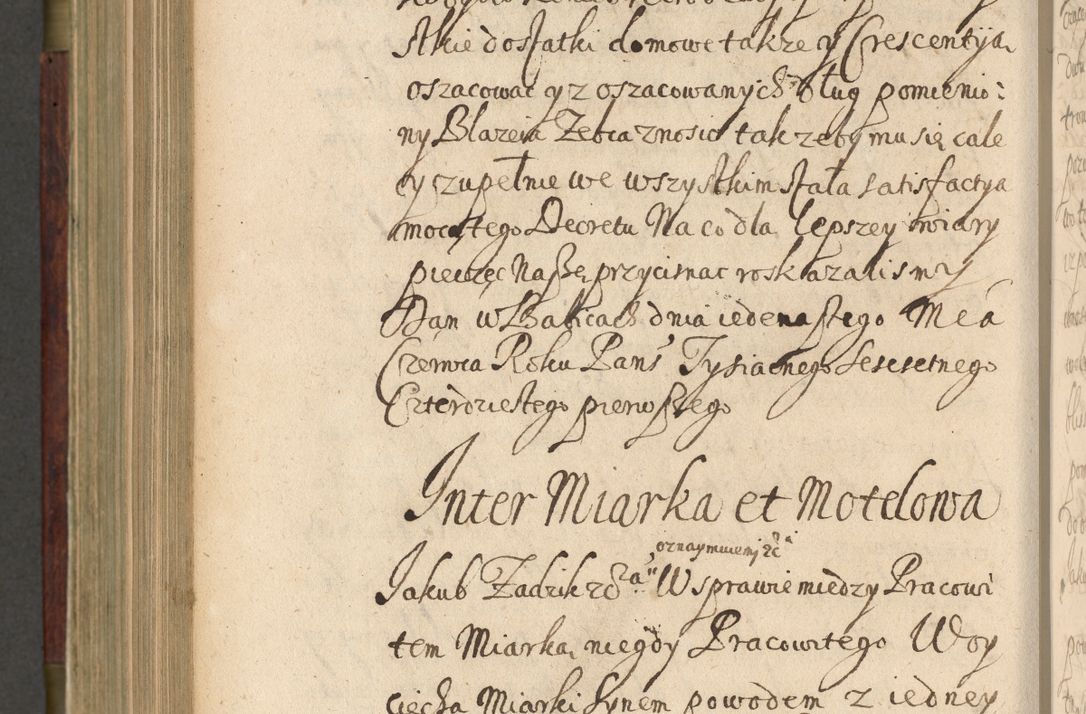 stkie dostatki domowe takze y Crescentyą
oszacować y z oszacowanych dług pomienio:
ny Blazeia Zebca znosić tak zeby mu się całe
y zupełnie we wszystkim stała satisfactya
mocą tego Decretu Na co dla lepszey wiary
pieczęc Naszę przycisnac roskazalismy
Dan w Babicach dnia iedenastego Mca
Czerwca Roku Pans Tysiącnego Szescsetnego
Czterdziestego pierwszego
Inter Miarka et Motelowa
oznaymuiemy
Jakub Zadzik W sprawie miedzy Pracowi
tem Miarką niegdy Pracowitego Woy
ciecha Miarki Synem powodem z iedney